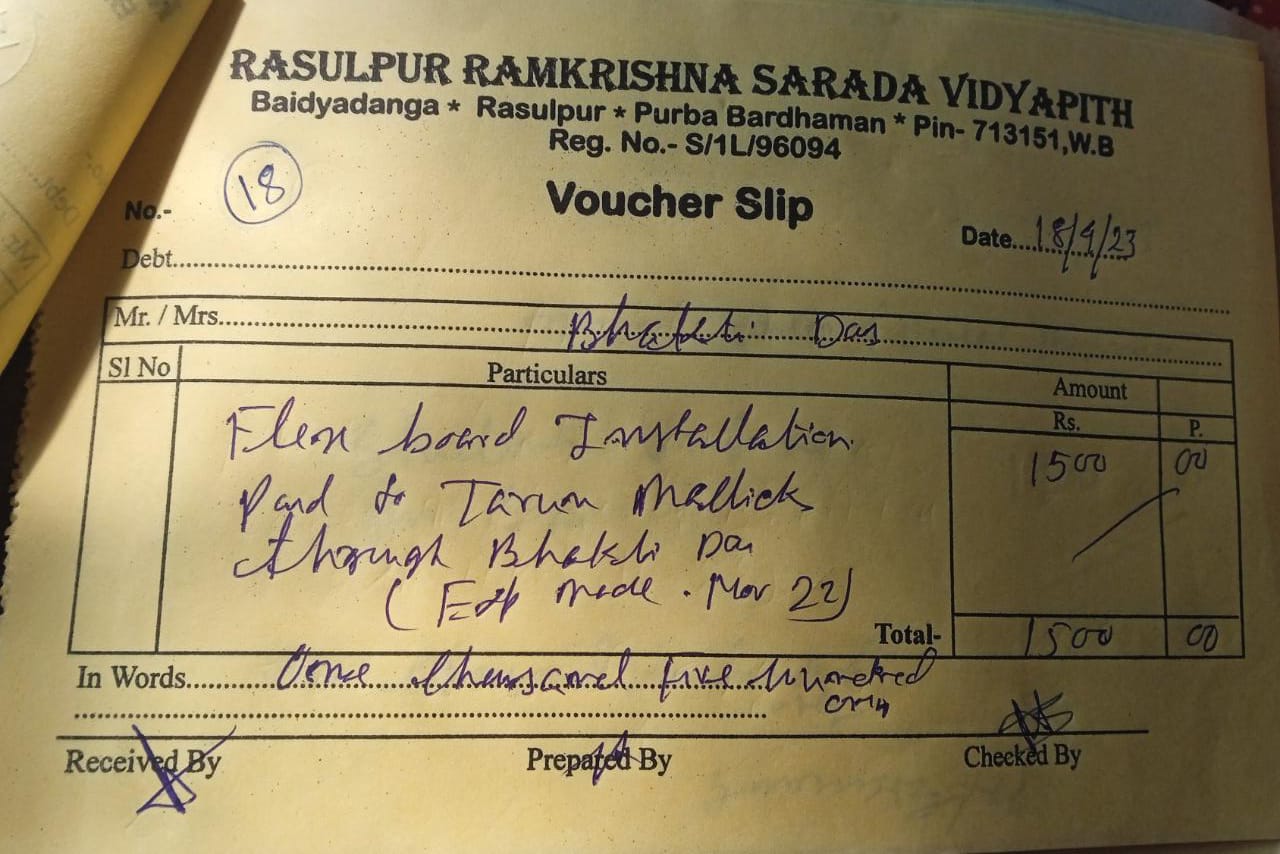 RASULPUR RAMKRISHNA SARADA VIDYAPITH
Baidyadanga * Rasulpur * Purba Bardhaman * Pin- 713151,W.B
Reg. No.- S/1L/96094
Voucher Slip
No.- 18
Date....18/4/23
Debt....
Mr. / Mrs.... Bhakti Das
Sl No Particulars Amount
Rs. P.
Flex board Installation 1500 00
Paid to Tarun Mallick
through Bhakti Das
(Exp made . Mar 22)
Total- 1500 00
In Words.... One thousand five hundred
only
Received By Prepared By Checked By